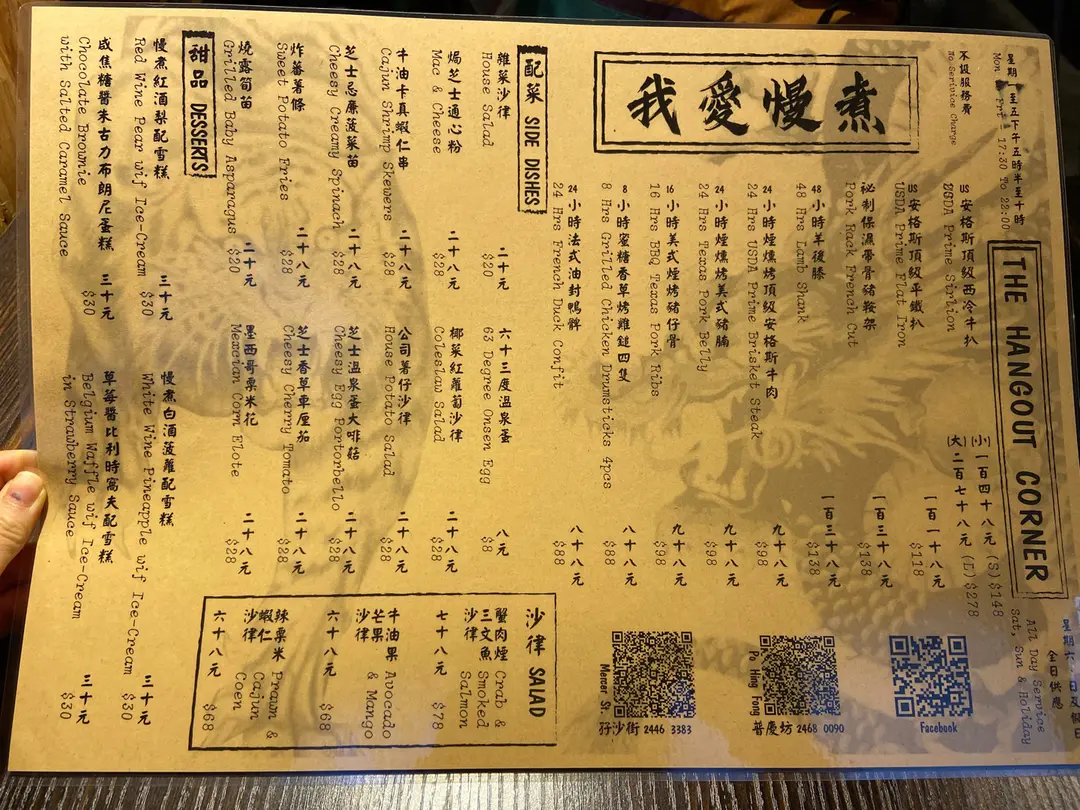 THE HANGOUT CORNER
17:30 To 22:00
不設服務費
No Serivice Charge
全日供應
All Day Service
Sat, Sun & Holiday
我愛慢煮
US安格斯頂級西冷牛扒
USDA Prime Sirlion
(小) 一百四十八元 (S) $148
(大) 二百七十八元 (L) $278
US安格斯頂級平鐵扒
USDA Prime Flat Iron
一百一十八元
$118
祕制保濕帶骨豬鞍架
Pork Rack French Cut
一百三十八元
$138
48小時羊後膝
48 Hrs Lamb Shank
一百三十八元
$138
24小時煙燻烤頂級安格斯牛肉
24 Hrs USDA Prime Brisket Steak
九十八元
$98
24小時煙燻烤美式豬腩
24 Hrs Texas Pork Belly
九十八元
$98
16小時美式煙烤豬仔骨
16 Hrs BBQ Texas Pork Ribs
九十八元
$98
8小時蜜糖香草烤雞鎚四隻
8 Hrs Grilled Chicken Drumsticks 4pcs
八十八元
$88
24小時法式油封鴨髀
24 Hrs French Duck Confit
八十八元
$88
Facebook
普慶坊 2468 0090
Po Hing Fong
孖沙街 2446 3383
Mercer St.
配菜 SIDE DISHES
雜菜沙律
House Salad
二十元
$20
六十三度溫泉蛋
63 Degree Onsen Egg
八元
$8
焗芝士通心粉
Mac & Cheese
二十八元
$28
椰菜紅蘿蔔沙律
Coleslaw Salad
二十八元
$28
牛油卡真蝦仁串
Cajun Shrimp Skewers
二十八元
$28
公司薯仔沙律
House Potato Salad
二十八元
$28
芝士忌廉菠菜苗
Cheesy Creamy Spinach
二十八元
$28
芝士溫泉蛋大啡菇
Cheesy Egg Portorbello
二十八元
$28
炸蕃薯條
Sweet Potato Fries
二十八元
$28
芝士香草車厘茄
Cheesy Cherry Tomato
二十八元
$28
燒露筍苗
Grilled Baby Asparagus
二十元
$20
墨西哥粟米花
Mexcian Corn Elote
二十八元
$28
沙律 SALAD
蟹肉煙三文魚沙律
Crab & Smoked Salmon
七十八元
$78
牛油果芒果沙律
Avocado & Mango
六十八元
$68
辣粟米蝦仁沙律
Prawn & Cajun Coen
六十八元
$68
甜品 DESSERTS
慢煮紅酒梨配雪糕
Red Wine Pear wif Ice-Cream
三十元
$30
慢煮白酒菠蘿配雪糕
White Wine Pineapple wif Ice-Cream
三十元
$30
咸焦糖醬朱古力布朗尼蛋糕
Chocolate Brownie
with Salted Caramel Sauce
三十元
$30
草莓醬比利時窩夫配雪糕
Belgium Waffle wif Ice-Cream
in Strawberry Sauce
三十元
$30